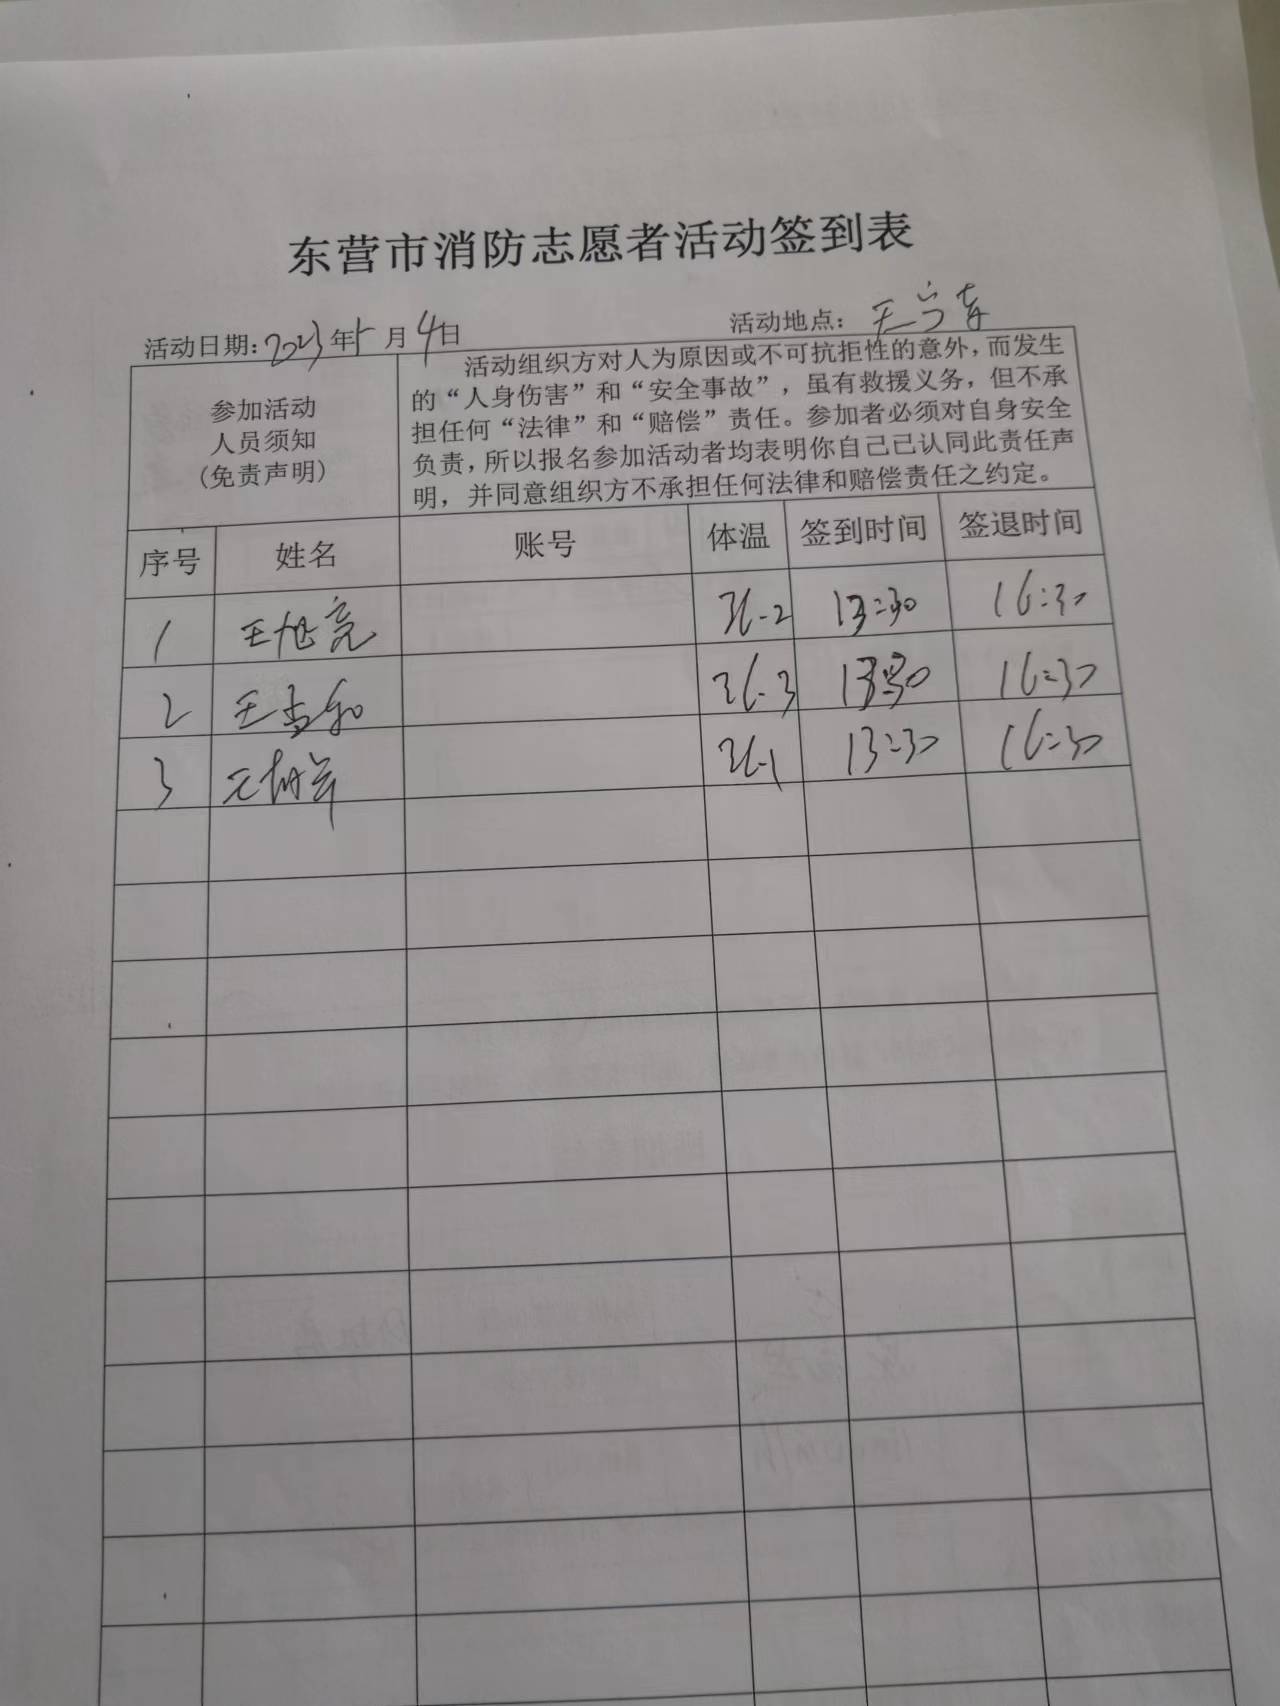 东营市消防志愿者活动签到表
活动日期：2023年5月4日 活动地点：王
参加活动
人员须知
(免责声明)
活动组织方对人为原因或不可抗拒性的意外，而发生
的“人身伤害”和“安全事故”，虽有救援义务，但不承
担任何“法律”和“赔偿”责任。参加者必须对自身安全
负责，所以报名参加活动者均表明你自己已认同此责任声
明，并同意组织方不承担任何法律和赔偿责任之约定。
序号 姓名 账号 体温 签到时间 签退时间
1 王旭亮 36.2 13:30 16:30
2 王 36.3 13:30 16:30
3 36.1 13:30 16:30